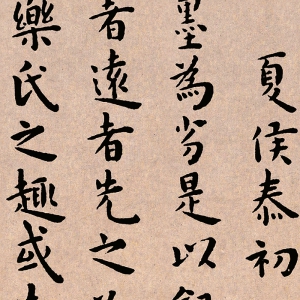 夏侯泰初
墨為劣是以叙
者遠者先之
樂氏之趣或